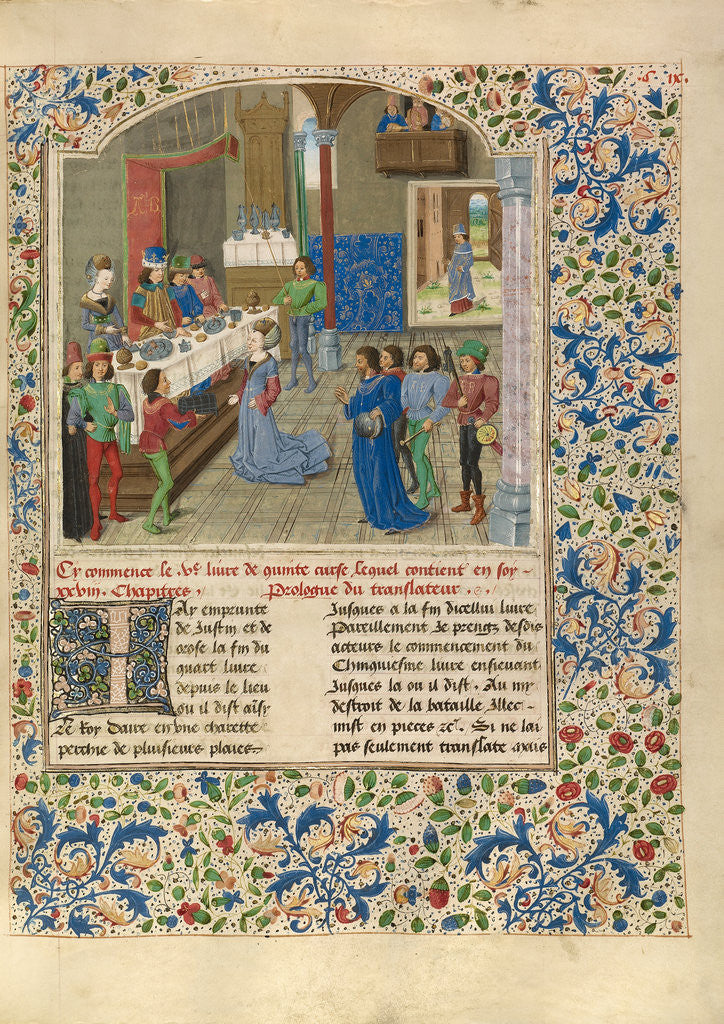 Cy commence le .Ve. livre de quinte curse, lequel contient en soy
xxviii. Chapitres, Prologue du translateur.
I Ay emprunte
de Justin et de
orose la fin du
quart livre
depuis le lieu
ou il dist ainsy
Le Roy Daire en une charette
perchie de pluiseurs plaies
Jusques a la fin dicellui livre
Pareillement Je prengz desdis
acteurs le commencement du
Chinquiesme livre ensievant
Jusques la ou il dist. Au
destroit de la bataille, Illec
mist en pieces &c. Si ne lai
pas seulement translate mais